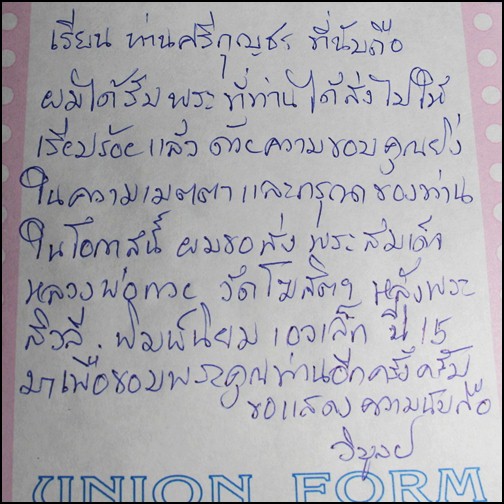 เรียน ท่านศรีกุญชร ที่นับถือ
ผมได้รับพระที่ท่านได้ส่งไปให้
เรียบร้อยแล้ว ด้วยความขอบคุณยิ่ง
ในความเมตตาและกรุณาของท่าน
ในโอกาสนี้ ผมขอส่งพระสมเด็จ
หลวงพ่อกวย วัดโฆสิตฯ หลังพระ
สิวลี. พิมพ์นิยม เอวเล็ก ปี 15
มาเพื่อขอบพระคุณท่านอีกครั้งครับ
ขอแสดงความนับถือ
วิบูลย์
UNION FORM